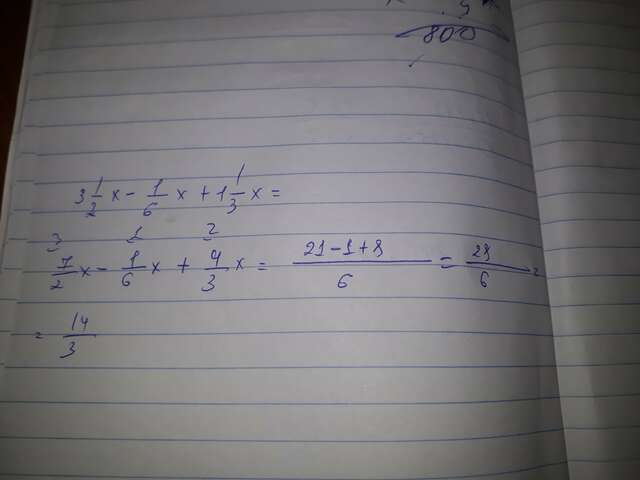 800
3 1/2 x - 1/6 x + 1 1/3 x =
3 1 2
7/2 x - 1/6 x + 4/3 x = 21-1+8/6 = 28/6 =
= 14/3